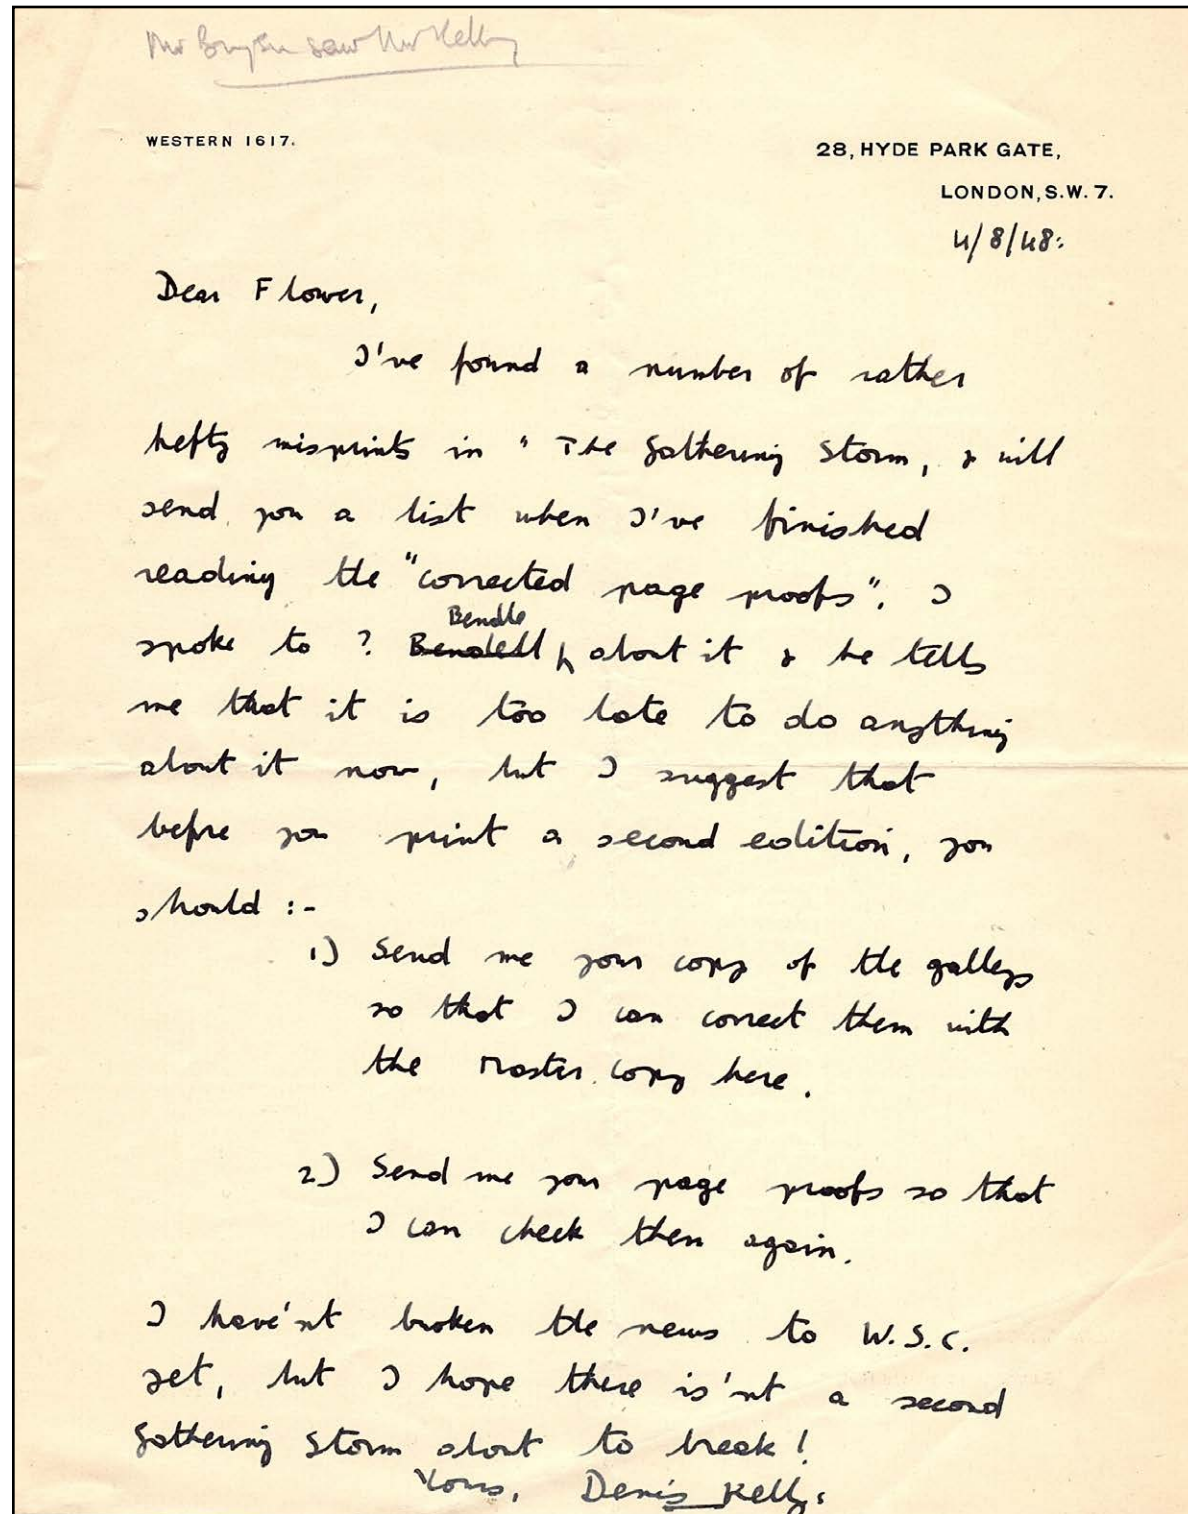 Mr Bryen saw Mr Kelly
WESTERN 1617.
28, HYDE PARK GATE,
LONDON, S.W. 7.
4/8/48:
Dear Flower,
I've found a number of rather
hefty misprints in "The Gathering Storm, & will
send you a list when I've finished
reading the "corrected page proofs". I
Bendle
spoke to ? Bendell about it & he tells
me that it is too late to do anything
about it now, but I suggest that
before you print a second edition, you
should :-
1) Send me your copy of the galleys
so that I can correct them with
the Master copy here.
2) Send me your page proofs so that
I can check them again.
I have'nt broken the news to W.S.C.
yet, but I hope there is'nt a second
Gathering Storm about to break!
Yours, Denis Kelly.